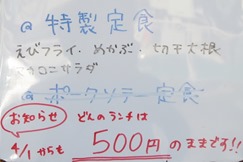 @ 特製定食
えびフライ. めかぶ. 切干大根
マカロニサラダ
@ ポークソテー定食
お知らせ
どのランチは
4/1 からも
500円 のままです!!